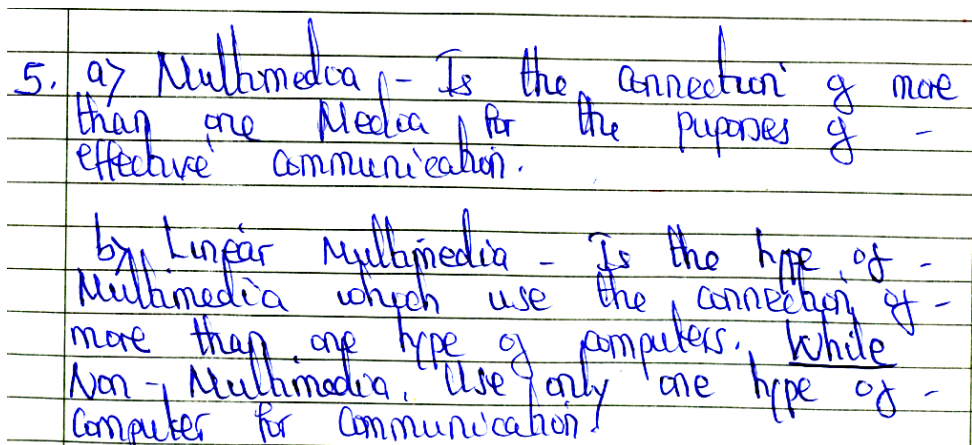 5. a) Multimedia - Is the connection of more
than one Media for the puporses of -
effective communication.
b) Linear Multimedia - Is the type of -
Multimedia which use the connection of -
more than one type of computers. While
Non - Multimedia, Use only one type of -
Computer for Communication.